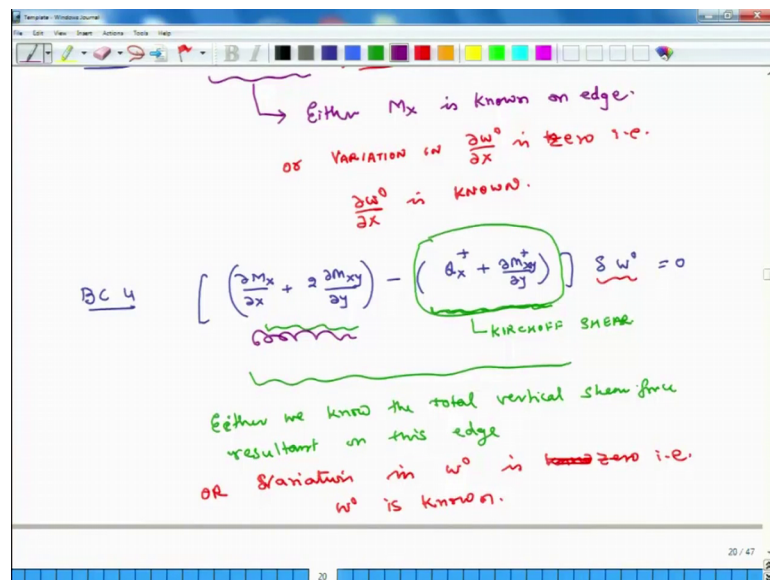 Template - Windows Journal
File Edit View Insert Actions Tools Help
B I
→ Either Mx is known on edge.
or VARIATION in ∂w⁰/∂x is zero i.e.
∂w⁰/∂x is KNOWN.
BC 4 [ (∂Mx/∂x + 2 ∂Mxy/∂y) - ( Qx⁺ + ∂Mxy⁺/∂y ) ] δ w⁰ = 0
KIRCHOFF SHEAR
Either we know the total vertical shear force
resultant on this edge
OR Variation in w⁰ is zero i.e.
w⁰ is known.
20 / 47
20